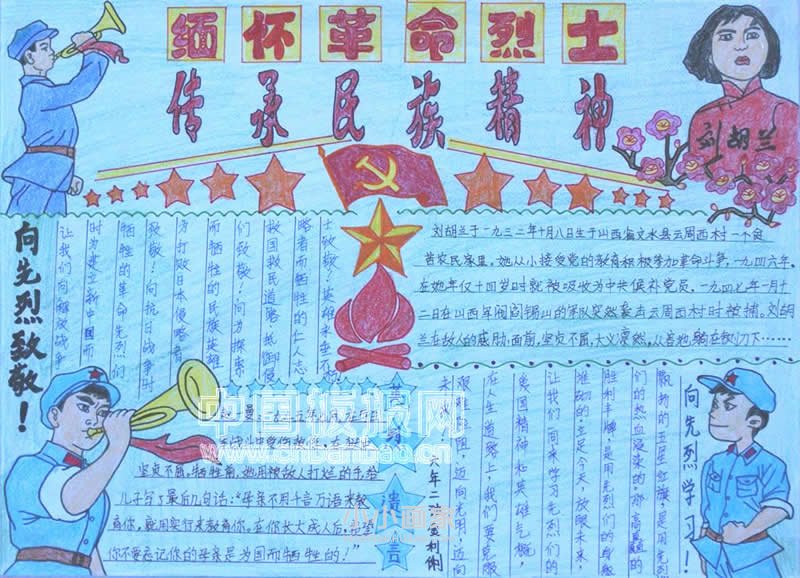 缅怀革命烈士
传承民族精神
刘胡兰
向先烈致敬！
士致敬！英雄永垂不
略者而牺牲的仁人志
救国救民道路、抵御侵
们致敬！向为探索
而牺牲的民族英雄
方打败日本侵略者
致敬！向抗日战争时
牺牲的革命先烈们
时为建立新中国而
让我们向解放战争
刘胡兰于一九三二年十月八日生于山西省文水县云周西村一个贫
苦农民家里。她从小接受党的教育积极参加革命斗争，一九四六年，
在她年仅十四岁时就被吸收为中共候补党员，一九四七年一月十
二日在山西军阀阎锡山的军队突然袭击云周西村时被捕。刘胡
兰在敌人的威胁面前，坚贞不屈，大义凛然，从容地躺在铡刀下……
坚贞不屈，牺牲前，她用被敌人打烂的手，给
儿子写了最后几句话：“母亲不用千言万语来教
育你，就用实行来教育你。在你长大成人后，希望
你不要忘记你的母亲是为国而牺牲的！”
遗言
飘扬的五星红旗，是用先烈
们的热血浸染的，那高矗的
胜利丰碑，是用先烈们的身躯
堆砌的。立足今天，放眼未来，
让我们一同来学习先烈们的
爱国精神和英雄气概，
在人生道路上，我们要克服
向先烈学习！
中国板报网
www.cnbanbao.cn
小小画家